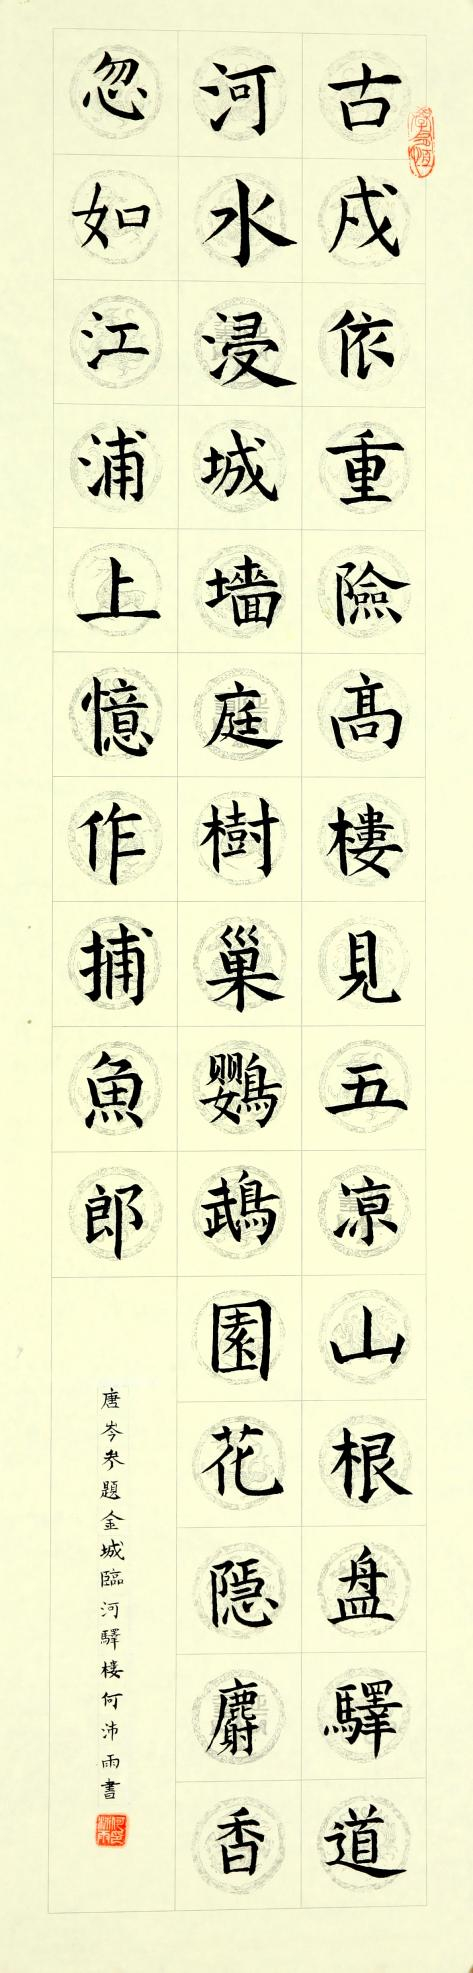 古戍依重險高樓見五凉山根盘驛道
河水浸城墻庭樹巢鹦鵡園花隠麝香
忽如江浦上憶作捕魚郎
唐岑參題金城臨河驛楼何沛雨書